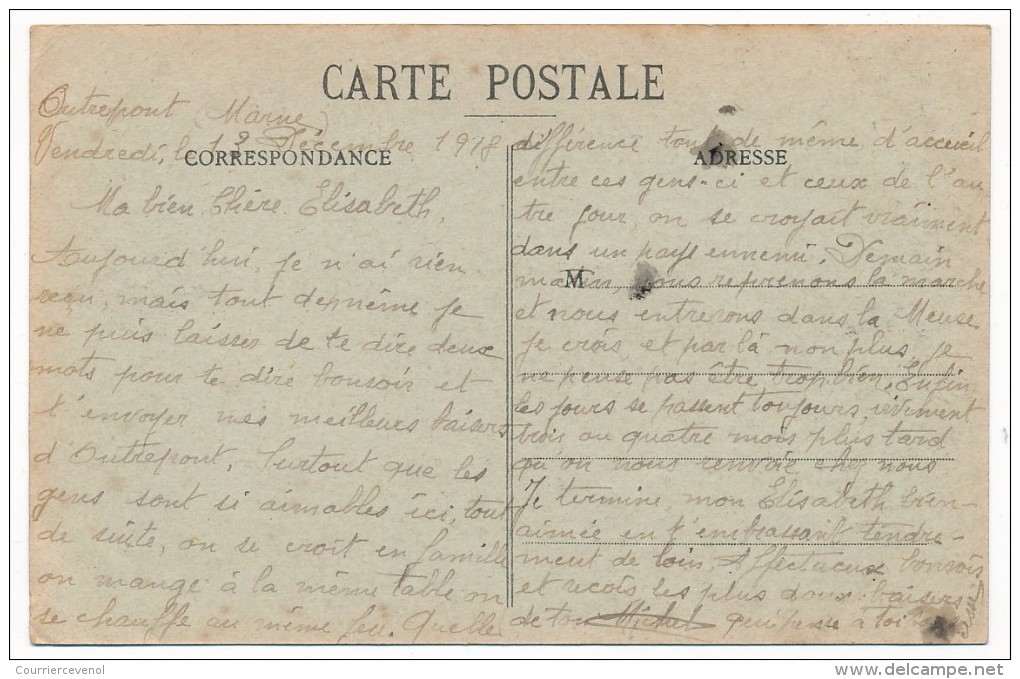 CARTE POSTALE
CORRESPONDANCE
ADRESSE
M
Outrepont (Marne)
Vendredi, le 13 Décembre 1918
Ma bien Chère Elisabeth,
Aujourd'hui, je n'ai rien
reçu, mais tout de même je
ne puis laisser de te dire deux
mots pour te dire bonsoir et
t'envoyer mes meilleurs baisers
d'Outrepont. Surtout que les
gens sont si aimables ici, tout
de suite, on se croit en famille
on mange à la même table, on
se chauffe au même feu. Quelle
différence tout de même d'accueil
entre ces gens-ci et ceux de l'au
tre jour, on se croyait vraiment
dans un pays ennemi. Demain
matin, nous reprenons la marche
et nous entrerons dans la Meuse
je crois, et par là non plus, je
ne pense pas être trop bien. Enfin
les jours se passent toujours, vivement
trois ou quatre mois plus tard
qu'on nous renvoie chez nous
Je termine mon Elisabeth bien-
aimée en t'embrassant tendre-
ment de loin. Affectueux bonsoir
et reçois les plus doux baisers
de ton Michel qui pense à toi
Courriercevenol
www.delcampe.net